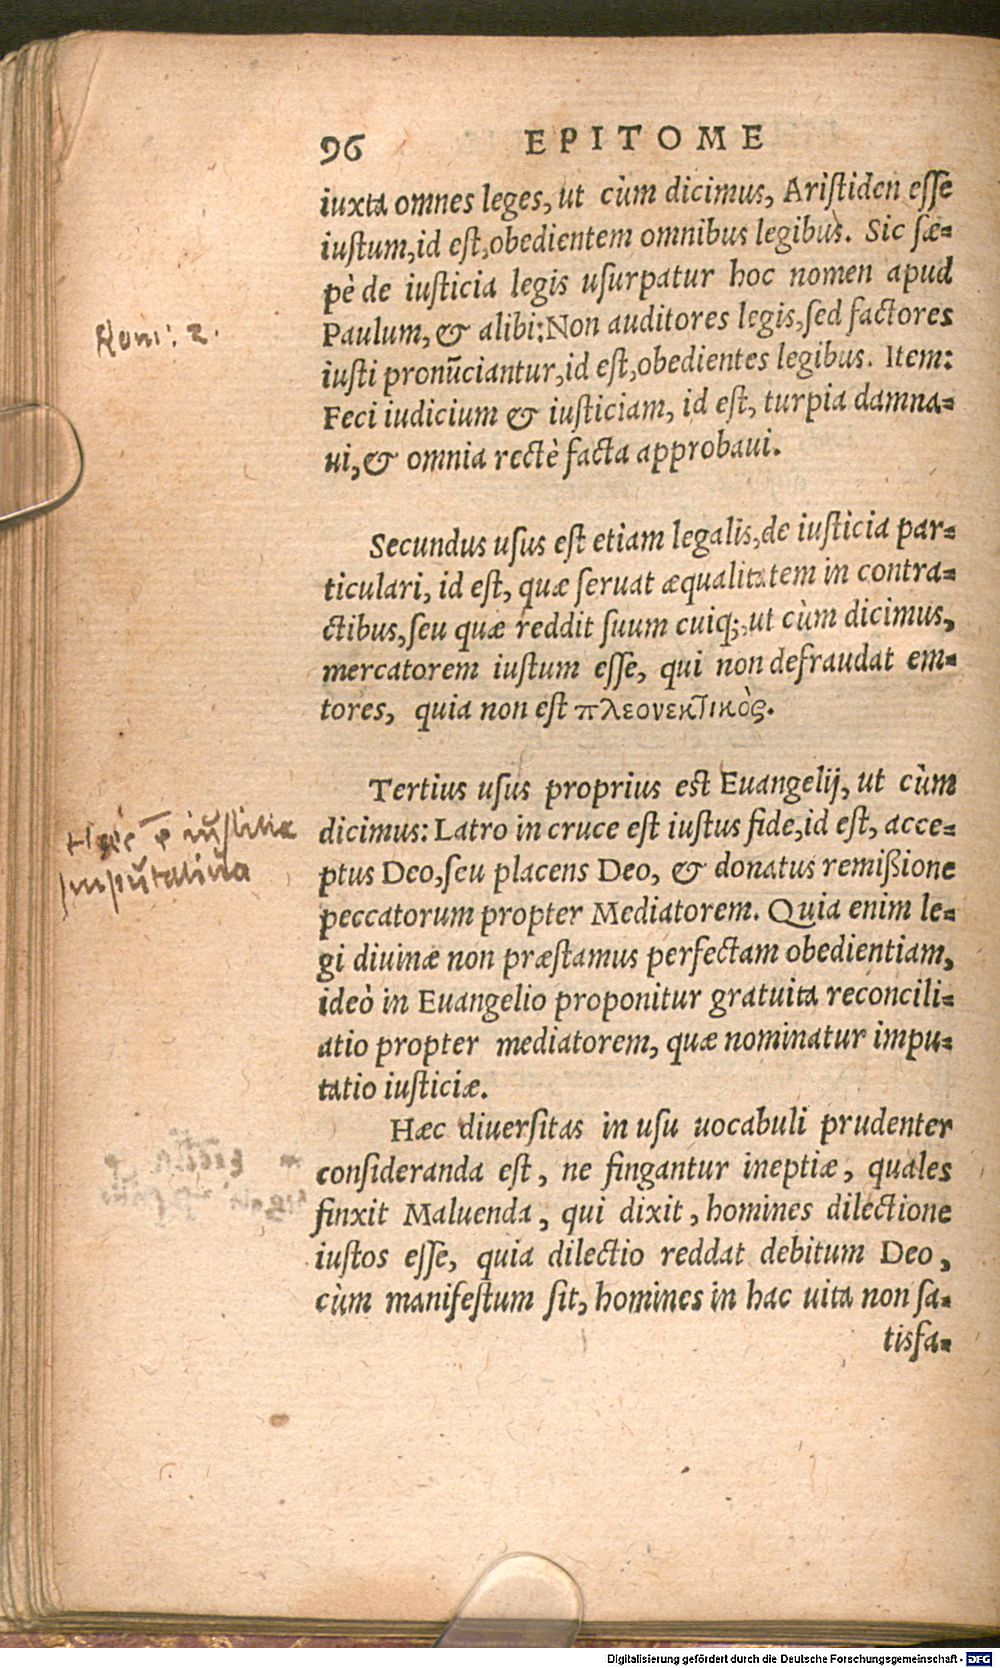 96 EPITOME
iuxta omnes leges, ut cùm dicimus, Aristiden esse
iustum, id est, obedientem omnibus legibus. Sic sæ-
pè de iusticia legis usurpatur hoc nomen apud
Paulum, & alibi: Non auditores legis, sed factores
Rom: 2.
iusti pronũciantur, id est, obedientes legibus. Item:
Feci iudicium & iusticiam, id est, turpia damna-
ui, & omnia rectè facta approbaui.
Secundus usus est etiam legalis, de iusticia par-
ticulari, id est, quæ seruat æqualitatem in contra-
ctibus, seu quæ reddit suum cuiq;, ut cùm dicimus,
mercatorem iustum esse, qui non defraudat em-
tores, quia non est πλεονεκτικὸς.
Tertius usus proprius est Euangelij, ut cùm
dicimus: Latro in cruce est iustus fide, id est, acce-
Hæc ē iustitia
ptus Deo, seu placens Deo, & donatus remißione
Imputatiua
peccatorum propter Mediatorem. Quia enim le-
gi diuinæ non præstamus perfectam obedientiam,
ideò in Euangelio proponitur gratuita reconcili-
atio propter mediatorem, quæ nominatur impu-
tatio iusticiæ.
Hæc diuersitas in usu uocabuli prudenter
consideranda est, ne fingantur ineptiæ, quales
finxit Maluenda, qui dixit, homines dilectione
iustos esse, quia dilectio reddat debitum Deo,
cùm manifestum sit, homines in hac uita non sa-
tisfa-
Digitalisierung gefördert durch die Deutsche Forschungsgemeinschaft - DFG